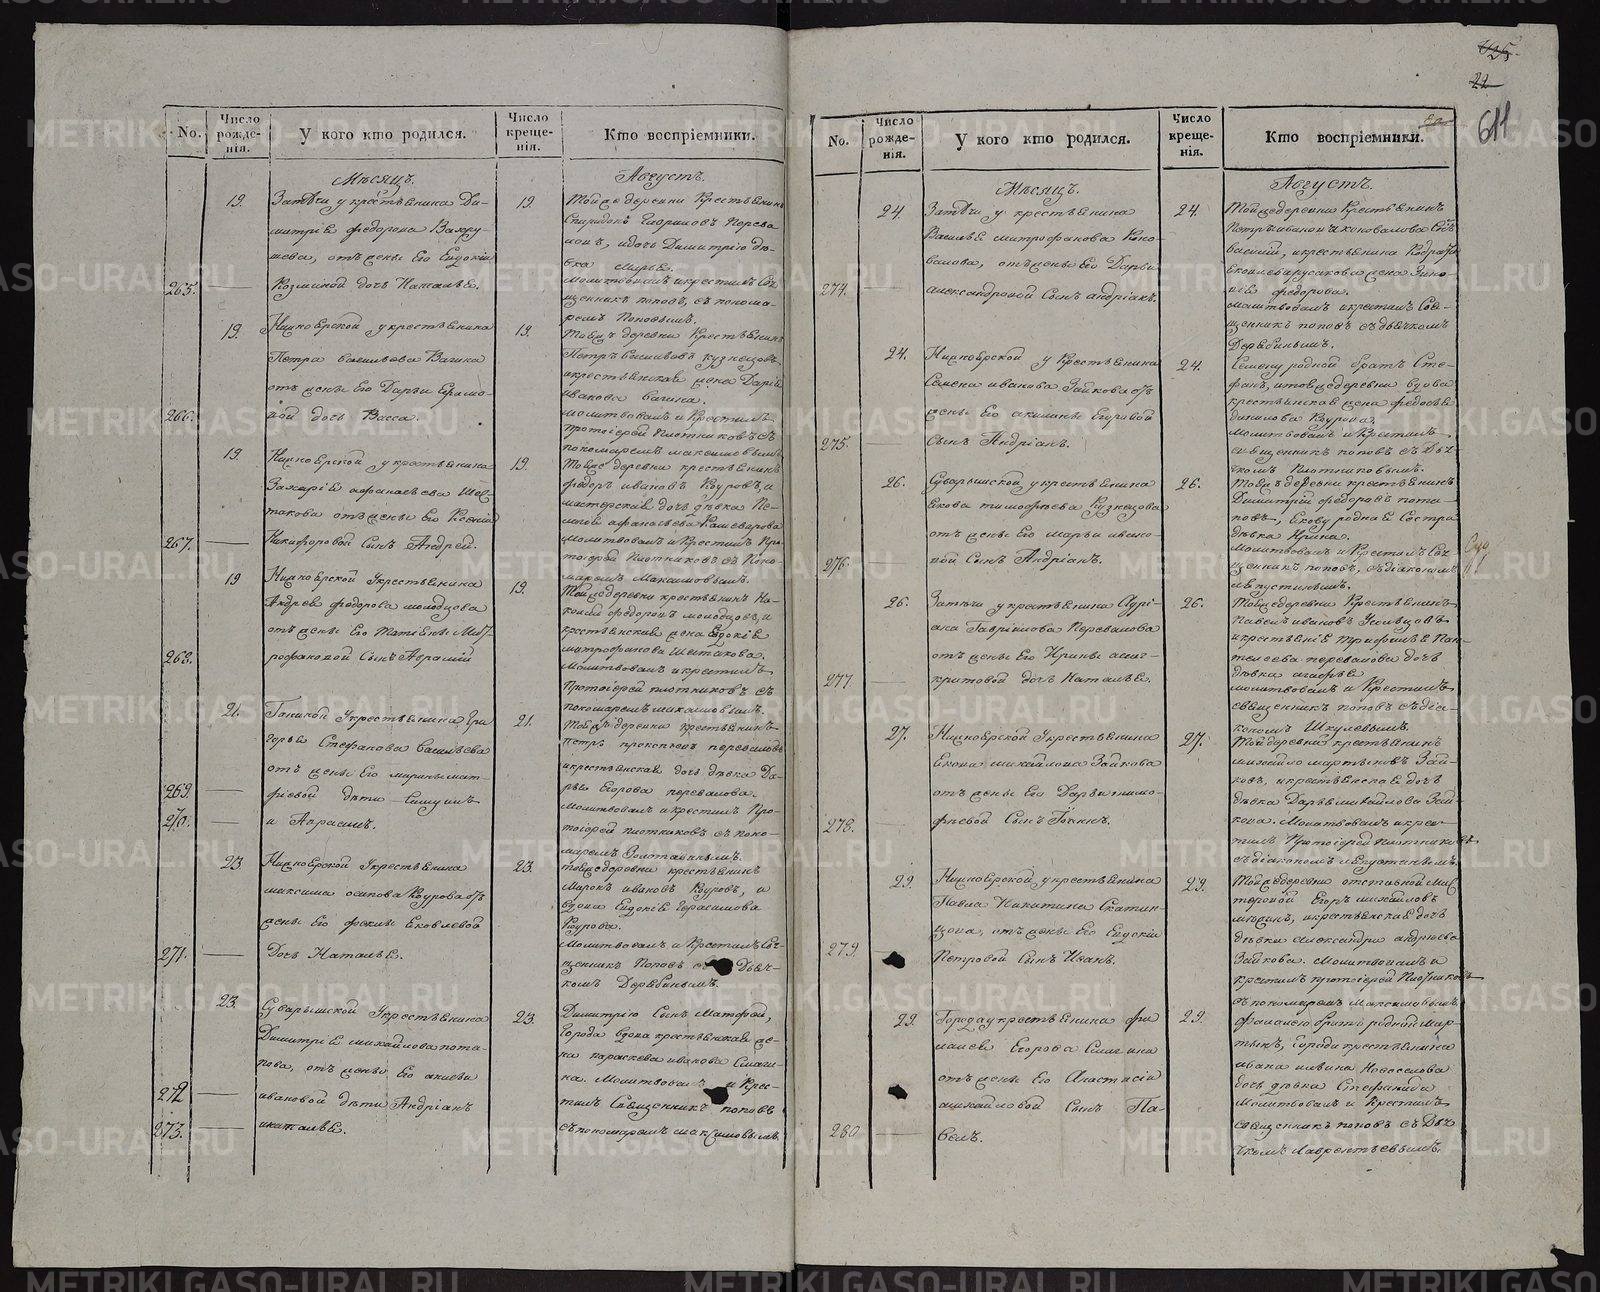 No.
Число рожде-нія.
У кого кто родился.
Число креще-нія.
Кто воспріемники.
Мѣсяцъ.
Августъ.
19.
Затечи у крестьянина Ди-
митрія федорова Вахру-
шева, отъ жены Его Евдокіи
265.
Козминой дочь Наталья.
19.
Тойже деревни Крестьянинъ
Спиридонъ Гавриловъ Перева
ловъ, и дочь Димитрію дѣ-
вка Марья.
Молитвовалъ и крестилъ Свя-
щенникъ Поповъ, съ понома-
ремъ Поповымъ.
19.
Нижноярской у крестьянина
Петра Васильева Вагина
отъ жены Его Дарьи Ермо-
266.
вой дочь Васса.
19.
Тойжъ деревни Крестьянинъ
Петръ Васильевъ Кузнецовъ
и крестьянская жена Дарья
Иванова Вагина.
Молитвовалъ и Крестилъ
Протоіерей Плотниковъ съ
пономаремъ Максимовымъ.
19.
Нижноярской у крестьянина
Захарія Афанасьева Шес-
такова отъ жены Его Ксеніи
267.
Никифоровой Сынъ Андрей.
19.
Тойже деревни крестьянинъ
федоръ Ивановъ Кауровъ, и
мастерская дочь дѣвка Пе-
лагея Афанасьева Камеварова
Молитвовалъ и Крестилъ Про-
тоіерей Плотниковъ съ Поно-
маремъ Максимовымъ.
19
Нижноярской Укрестьянина
Андрея федорова Молодцова
отъ жены Его Татьяны Мит-
268.
рофановой Сынъ Аврамій
19.
Тойжедеревни крестьянинъ
федоровъ Молодцовъ, и
крестьянская жена Евдокія
Митрофанова Шестакова.
Молитвовалъ и крестилъ
Протоіерей Плотниковъ съ
пономаремъ Максимовымъ.
21.
Укрестьянина Гри
горья Стефанова Васильева
отъ жены Его Марины Мат-
269.
фіевой дѣти Симеонъ
270.
и Аврамъ.
21.
Тойжъ деревни крестьянинъ
Петръ Прокопьевъ Переваловъ
и крестьянская дочь дѣвка Да-
рья Егорова Перевалова.
Молитвовалъ и крестилъ Про-
тоіерей Плотниковъ съ поно-
маремъ Золотавинымъ.
23
Нижноярской Укрестьянина
Максима Осипова Каурова отъ
жены Его феклы Яковлевой
271.
Дочь Наталья.
23.
Тойжедеревни крестьянинъ
Маркъ Ивановъ Кауровъ, и
вдова Евдокія Герасимова
Каурова.
Молитвовалъ и Крестилъ Свя-
щенникъ Поповъ съ Дьяч-
комъ Дерябинымъ.
23.
Суварышской Укрестьянина
Димитрія Михайлова Пота-
пова, отъ жены Его
272
Ивановой дѣти Андріанъ
273.
и Наталья.
23.
Димитрію Сынъ Матфей,
Города вдова крестьянская
Параскева Иванова
Молитвовалъ и Крес-
тилъ Священникъ Поповъ
съ пономаремъ Максимовымъ.
125
22
611
No.
Число рожде-нія.
У кого кто родился.
Число креще-нія.
Кто воспріемники.
Мѣсяцъ.
Августъ.
24.
Затечи у крестьянина
Василья Митрофанова Коно-
валова, отъ жены Его Дарьи
274.
Александровой Сынъ Андріанъ.
24.
Тойжедеревни Крестьянинъ
Петръ Ивановъ Коноваловъ
Василій, и крестьянина
жена Зино-
вія федорова.
Молитвовалъ и крестилъ Свя-
щенникъ Поповъ съ дьячкомъ
Дерябинымъ.
24.
Нижноярской у Крестьянина
Семена Иванова Зайкова отъ
жены Его Акилины Егоровой
275.
Сынъ Андріанъ.
24.
Семену родной братъ Сте-
фанъ, и тойжедеревни вдова
крестьянская жена федосья
Данилова Каурова.
Молитвовалъ и Крестилъ
Священникъ Поповъ съ Дья-
чкомъ Плотниковымъ.
26.
Суварышской у крестьянина
Якова Тимофеева Кузнецова
отъ жены Его Марьи Ивано-
276.
вой Сынъ Андріанъ.
26.
Тойжъ деревни крестьянинъ
Димитрій федоровъ Пота-
повъ, Якову родная Сестра
дѣвка Ирина.
Молитвовалъ и Крестилъ Свя-
щенникъ Поповъ, съ діакономъ
Мпустинымъ.
26.
Затечи у крестьянина Адрі-
ана Гаврилова Перевалова
отъ жены Его Ирины
277
критовой дочь Наталья.
26.
Тойжедеревни Крестьянинъ
Павелъ Ивановъ
и крестьяня Трифилья Пан-
телеева Перевалова дочь
дѣвка Агафья
Молитвовалъ и Крестилъ
Священникъ Поповъ съ діа-
кономъ Шкулевымъ.
27.
Нижноярской Укрестьянина
Якова Михайлова Зайкова
отъ жены Его Дарьи Тимо-
278.
феевой Сынъ Іоаннъ.
27.
Той деревни крестьянинъ
Михайло Мартыновъ Зай-
ковъ, и крестьянская дочь
дѣвка Дарья Михайлова Зай-
кова. Молитвовалъ и крес-
тилъ Протоіерей Плотниковъ
съ діакономъ
29.
Нижноярской, у крестьянина
Павла Никитина Скатин-
цова, отъ жены Его Евдокіи
279.
Петровой Сынъ Иванъ.
29.
Тойжедеревни отставной Мас
теровой Егоръ Михайловъ
и крестьянская дочь
дѣвка Александра Андреева
Зайкова. Молитвовалъ и
крестилъ протоіерей Плотниковъ
съ пономаремъ Максимовымъ
29.
Города у крестьянина фи
Егорова
отъ жены Его Анастасіи
Михайловой Сынъ Па-
280
велъ.
29.
братъ родной Мар-
тынъ, Города крестьянина
Ивана Ильина Новоселова
дочь дѣвка Стефанида
Молитвовалъ и Крестилъ
Священникъ Поповъ съ Дья-
чкомъ Лаврентьевымъ.
METRIKI.GASO-URAL.RU